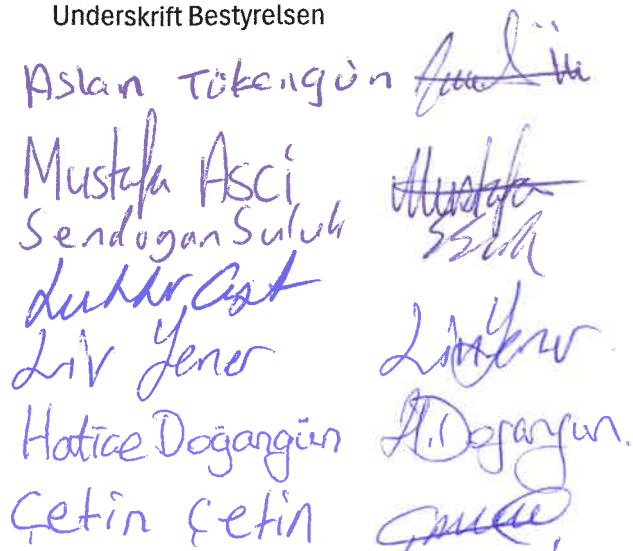 Underskrift Bestyrelsen
Aslan Tükengün
Mustafa Asci Mustafa
Sendogan Suluk
Liv Yener Liv Yener
Hatice Doğangün H. Dogangun.
Çetin Çetin